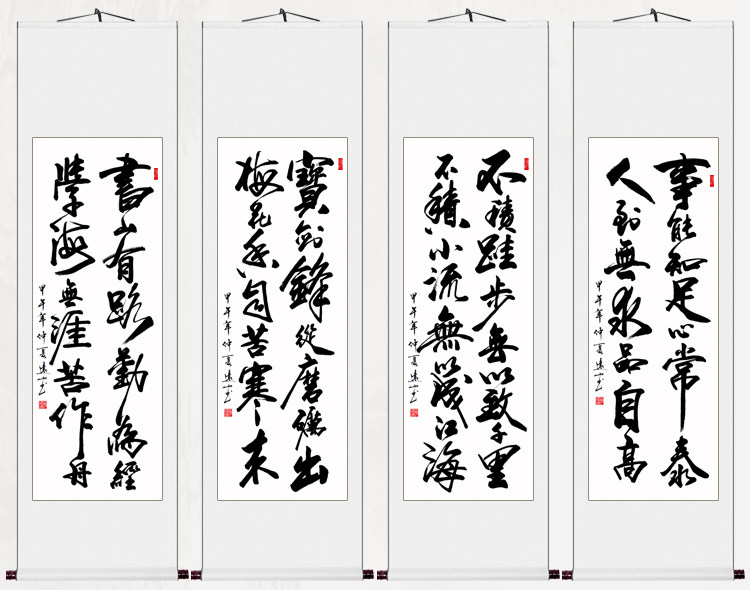 書山有路勤為經
學海無涯苦作舟
甲午年仲夏
寶劍鋒從磨礪出
梅花香自苦寒来
甲午年仲夏
不積跬步無以致千里
不積小流無以成江海
甲午年仲夏
事能知足心常泰
人到無求品自高
甲午年仲夏